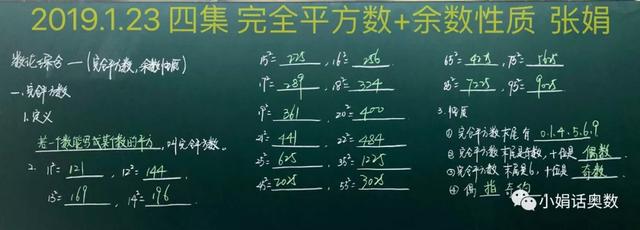 2019.1.23 四集 完全平方数+余数性质 张娟
数论综合一(完全平方数,余数性质)
一.完全平方数
1.定义
若一个数能写成某个数的平方,叫完全平方数。
2. 11²=121 12²=144
13²=169 14²=196
15²=225 16²=256
17²=289 18²=324
19²=361 20²=400
21²=441 22²=484
25²=625 35²=1225
45²=2025 55²=3025
65²=4225 75²=5625
85²=7225 95²=9025
3.性质
① 完全平方数末尾有 0.1.4.5.6.9
② 完全平方数末尾是奇数,十位是 偶数
③ 完全平方数末尾是6,十位是 奇数
④ 偶 指 奇 约
小娟话奥数